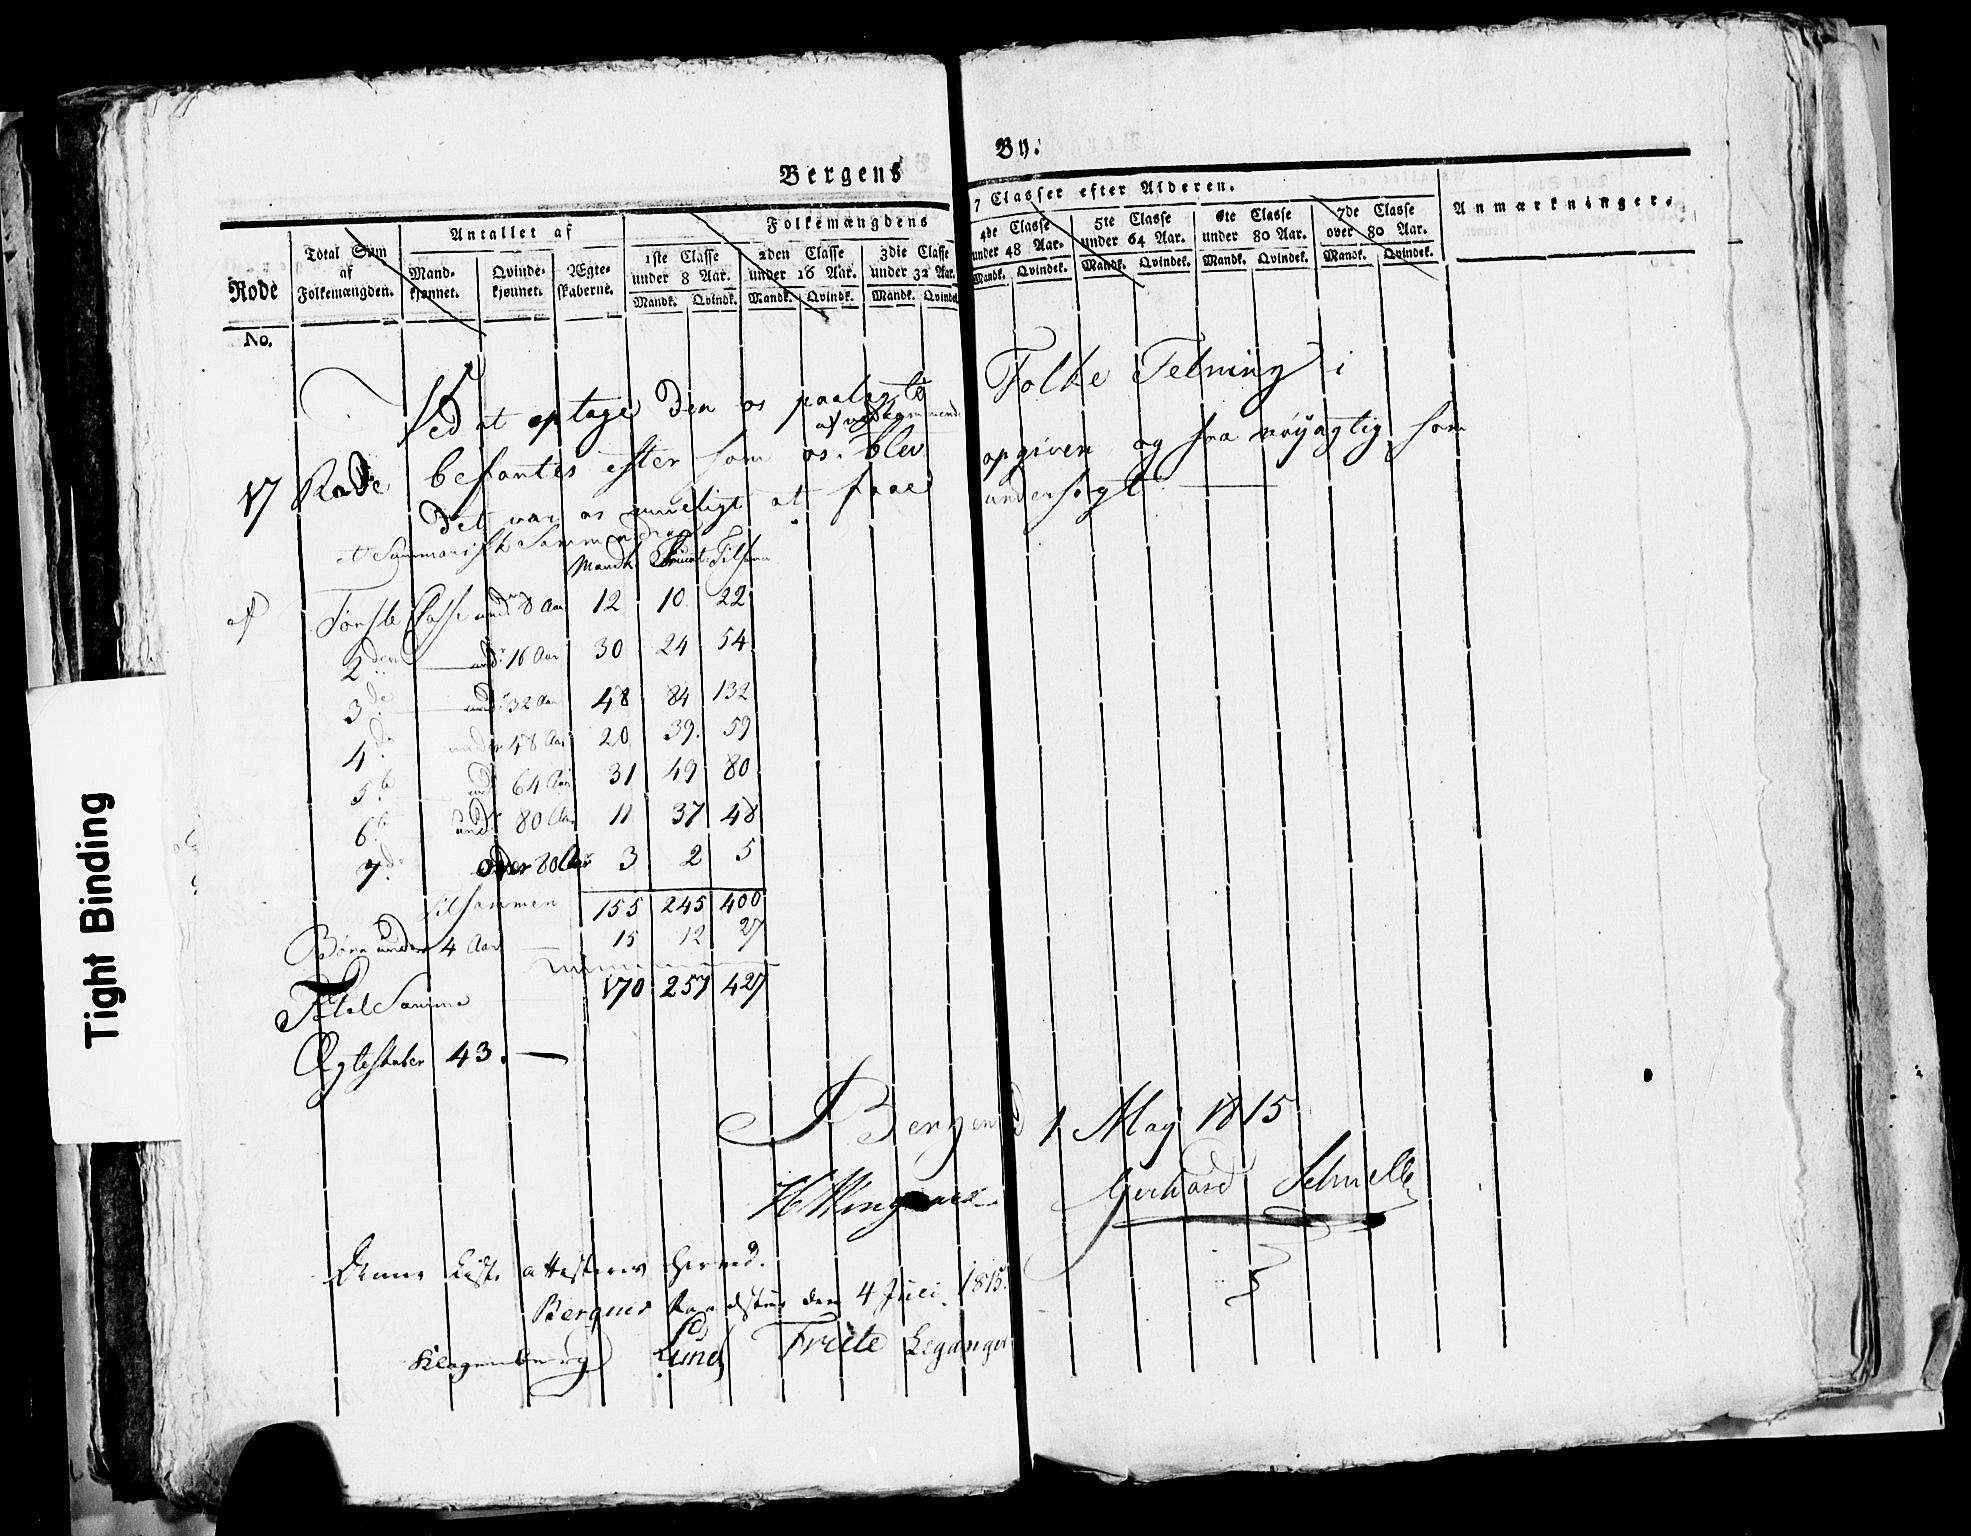 Bergens By.
Rode No.
Total Sum af Folkemængden.
Antallet af
Mand-kjønnet.
Qvinde-kjønnet.
Ægte-skaberne.
Folkemængdens 7 Classer efter Alderen.
1ste Classe under 8 Aar.
2den Classe under 16 Aar.
3die Classe under 32 Aar.
4de Classe under 48 Aar.
5te Classe under 64 Aar.
6te Classe under 80 Aar.
7de Classe over 80 Aar.
Mandk. Qvindek. Mandk. Qvindk. Mandk. Qvindek. Mandk. Qvindek. Mandk. Qvindek. Mandk. Qvindek. Mandk. Qvindek.
Anmærkninger.
Ved at optage den os paalagte Folke Telning i
af vedkommende
17 Rode befantes efter som os blev opgiven og saa nöyagtig som
det var os mueligt at faae undersögt
et Summarisk Sammendrag
Mandk. Qvindk. Tilsamen
af Förste Classe undr 8 Aar 12 10 22
2den undr 16 Aar 30 24 54
3de undr 32 Aar 48 84 132
4de under 48 Aar 20 39 59
5te undr 64 Aar 31 49 80
6te undr 80 Aar 11 37 48
7de over 80 Aar 3 2 5
Tilsammen 155 245 400
Börn under 4 Aar 15 12 27
Total Summa 170 257 427
Ægteskaber 43.
Bergen d 1 May 1815
Gerhard Schnelle
Denne Liste attesteres herved.
Bergens Raadstue den 4 Juli 1815.
Klagenberg Lund Friele Leganger
Tight Binding